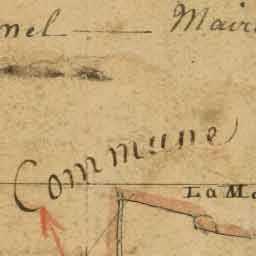 nel — Mair
Commune
La Ma